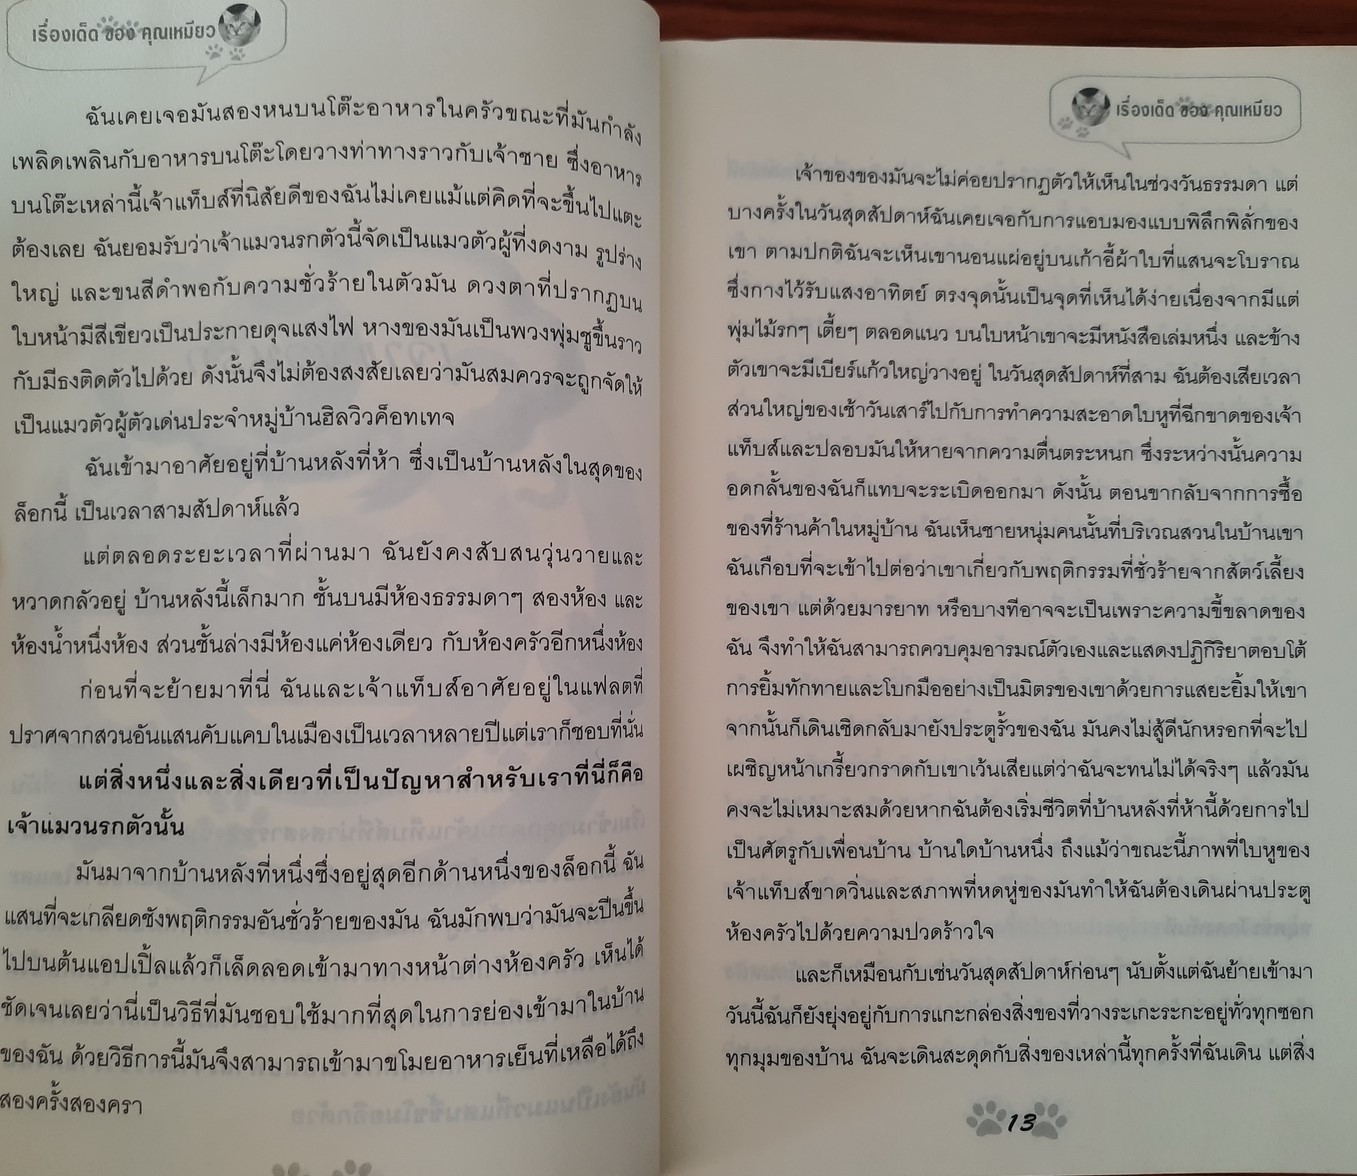 เรื่องเด็ด ของ คุณเหมียว
ฉันเคยเจอมันสองหนบนโต๊ะอาหารในครัวขณะที่มันกำลัง
เพลิดเพลินกับอาหารบนโต๊ะโดยวางท่าทางราวกับเจ้าชาย ซึ่งอาหาร
บนโต๊ะเหล่านี้เจ้าแท็บส์ที่นิสัยดีของฉันไม่เคยแม้แต่คิดที่จะขึ้นไปแตะ
ต้องเลย ฉันยอมรับว่าเจ้าแมวนรกตัวนี้จัดเป็นแมวตัวผู้ที่งดงาม รูปร่าง
ใหญ่ และขนสีดำพอกับความชั่วร้ายในตัวมัน ดวงตาที่ปรากฏบน
ใบหน้ามีสีเขียวเป็นประกายดุจแสงไฟ หางของมันเป็นพวงพุ่มชูขึ้นราว
กับมีธงติดตัวไปด้วย ดังนั้นจึงไม่ต้องสงสัยเลยว่ามันสมควรจะถูกจัดให้
เป็นแมวตัวผู้ตัวเด่นประจำหมู่บ้านฮิลวิวค็อทเทจ
ฉันเข้ามาอาศัยอยู่ที่บ้านหลังที่ห้า ซึ่งเป็นบ้านหลังในสุดของ
ล็อกนี้ เป็นเวลาสามสัปดาห์แล้ว
แต่ตลอดระยะเวลาที่ผ่านมา ฉันยังคงสับสนวุ่นวายและ
หวาดกลัวอยู่ บ้านหลังนี้เล็กมาก ชั้นบนมีห้องธรรมดาๆ สองห้อง และ
ห้องน้ำหนึ่งห้อง ส่วนชั้นล่างมีห้องแค่ห้องเดียว กับห้องครัวอีกหนึ่งห้อง
ก่อนที่จะย้ายมาที่นี่ ฉันและเจ้าแท็บส์อาศัยอยู่ในแฟลตที่
ปราศจากสวนอันแสนคับแคบในเมืองเป็นเวลาหลายปีแต่เราก็ชอบที่นั่น
แต่สิ่งหนึ่งและสิ่งเดียวที่เป็นปัญหาสำหรับเราที่นี่ก็คือ
เจ้าแมวนรกตัวนั้น
มันมาจากบ้านหลังที่หนึ่งซึ่งอยู่สุดอีกด้านหนึ่งของล็อกนี้ ฉัน
แสนที่จะเกลียดชังพฤติกรรมอันชั่วร้ายของมัน ฉันมักพบว่ามันจะปีนขึ้น
ไปบนต้นแอปเปิ้ลแล้วก็เล็ดลอดเข้ามาทางหน้าต่างห้องครัว เห็นได้
ชัดเจนเลยว่านี่เป็นวิธีที่มันชอบใช้มากที่สุดในการย่องเข้ามาในบ้าน
ของฉัน ด้วยวิธีการนี้มันจึงสามารถเข้ามาขโมยอาหารเย็นที่เหลือได้ถึง
สองครั้งสองครา
เรื่องเด็ด ของ คุณเหมียว
เจ้าของของมันจะไม่ค่อยปรากฏตัวให้เห็นในช่วงวันธรรมดา แต่
บางครั้งในวันสุดสัปดาห์ฉันเคยเจอกับการแอบมองแบบพิลึกพิลั่กของ
เขา ตามปกติฉันจะเห็นเขานอนแผ่อยู่บนเก้าอี้ผ้าใบที่แสนจะโบราณ
ซึ่งกางไว้รับแสงอาทิตย์ ตรงจุดนั้นเป็นจุดที่เห็นได้ง่ายเนื่องจากมีแต่
พุ่มไม้รกๆ เตี้ยๆ ตลอดแนว บนใบหน้าเขาจะมีหนังสือเล่มหนึ่ง และข้าง
ตัวเขาจะมีเบียร์แก้วใหญ่วางอยู่ ในวันสุดสัปดาห์ที่สาม ฉันต้องเสียเวลา
ส่วนใหญ่ของเช้าวันเสาร์ไปกับการทำความสะอาดใบหูที่ฉีกขาดของเจ้า
แท็บส์และปลอบมันให้หายจากความตื่นตระหนก ซึ่งระหว่างนั้นความ
อดกลั้นของฉันก็แทบจะระเบิดออกมา ดังนั้น ตอนขากลับจากการซื้อ
ของที่ร้านค้าในหมู่บ้าน ฉันเห็นชายหนุ่มคนนั้นที่บริเวณสวนในบ้านเขา
ฉันเกือบที่จะเข้าไปต่อว่าเขาเกี่ยวกับพฤติกรรมที่ชั่วร้ายจากสัตว์เลี้ยง
ของเขา แต่ด้วยมารยาท หรือบางทีอาจจะเป็นเพราะความขี้ขลาดของ
ฉัน จึงทำให้ฉันสามารถควบคุมอารมณ์ตัวเองและแสดงปฏิกิริยาตอบโต้
การยิ้มทักทายและโบกมืออย่างเป็นมิตรของเขาด้วยการแสยะยิ้มให้เขา
จากนั้นก็เดินเชิดกลับมายังประตูรั้วของฉัน มันคงไม่สู้ดีนักหรอกที่จะไป
เผชิญหน้าเกรี้ยวกราดกับเขาเว้นเสียแต่ว่าฉันจะทนไม่ได้จริงๆ แล้วมัน
คงจะไม่เหมาะสมด้วยหากฉันต้องเริ่มชีวิตที่บ้านหลังที่ห้านี้ด้วยการไป
เป็นศัตรูกับเพื่อนบ้าน บ้านใดบ้านหนึ่ง ถึงแม้ว่าขณะนี้ภาพที่ใบหูของ
เจ้าแท็บส์ขาดวิ่นและสภาพที่หดหู่ของมันทำให้ฉันต้องเดินผ่านประตู
ห้องครัวไปด้วยความปวดร้าวใจ
และก็เหมือนกับเช่นวันสุดสัปดาห์ก่อนๆ นับตั้งแต่ฉันย้ายเข้ามา
วันนี้ฉันก็ยังยุ่งอยู่กับการแกะกล่องสิ่งของที่วางระเกะระกะอยู่ทั่วทุกซอก
ทุกมุมของบ้าน ฉันจะเดินสะดุดกับสิ่งของเหล่านี้ทุกครั้งที่ฉันเดิน แต่สิ่ง
13